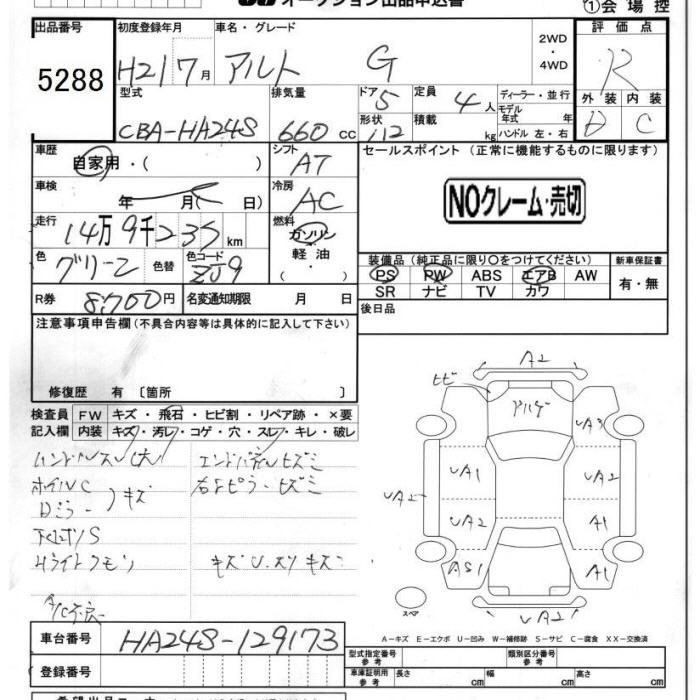 オークション出品申込書
①会場控
出品番号 5288
初度登録年月 H21 7月
車名・グレード アルト G
2WD・4WD
評価点 R
外装 D 内装 C
型式 CBA-HA24S
排気量 660 cc
ドア 5 形状 112
定員 4人 積載 kg
ディーラー・並行
モデル年式 年
ハンドル 左・右
車歴 自家用・( )
シフト AT
セールスポイント (正常に機能するものに限ります)
NOクレーム・売切
車検 年 月( 日)
冷房 AC
走行 14万9千235 km
燃料 ガソリン・軽油・
色 グリーン 色替 色コード ZJ9
装備品(純正品に限り○をつけてください) 新車保証書
PS PW ABS エアB AW 有・無
SR ナビ TV カワ
R券 8,700円 名変通知期限 月 日
後日品
注意事項申告欄(不具合内容等は具体的に記入して下さい)
修復歴 有 〔箇所 〕
検査員 FW キズ・飛石・ヒビ割・リペア跡・×要
記入欄 内装 キズ・汚レ・コゲ・穴・スレ・キレ・破レ
ハンドルスレ大
ホイルC
Dミラー キズ
キズ U.スリキズ
A/C不良
A2
ヒビ
UA3
UA1 UA2
UA2
UA2 A1
AS1 A1
スペア UA2
A-キズ E-エクボ U-凹み W-補修跡 S-サビ C-腐食 XX-交換済
車台番号 HA24S-129173
登録番号
型式指定番号 参考 類別区分番号 参考
車庫証明用 参考 長さ cm 幅 cm 高さ cm